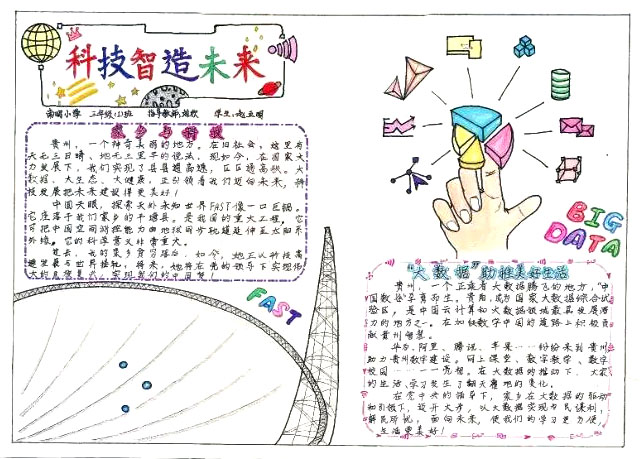 科技智造未来
南明小学 三年级(1)班 指导教师:雄欣 学生:赵立明
家乡与科技
贵州,一个神奇美丽的地方。在旧社会,这里有
天无三日晴、地无三里平的说法,现如今,在国家大
力发展下,我们实现了县县通高速,区区通高铁。大
数据,大生态、大健康,正引领着我们迈向未来,科
技发展把未来建设得更美好!
中国天眼,探索天外未知世界FAST像一口巨锅。
它座落于我们家乡的平塘县。是我国的重大工程。它
可把中国空间测控能力由地球同步轨道延伸至太阳系
外缘。它的科学意义非常重大。
过去,我的家乡贫穷落后,如今,她正以科技高
速发展与世界接轨,将来,她将在党的领导下实现伟
大的民族复兴,实现我们的中国梦!
FAST
BIG
DATA
“大数据”助推美好生活
贵州,一个正乘着大数据腾飞的地方,“中
国数谷”孕育而生,贵阳,成为国家大数据综合试
验区,是中国云计算和大数据极端最具发展潜
力的地方之一。在加快数字中国的道路上积极贡
献贵州智慧。
华为、阿里、腾讯、苹果……纷纷来到贵州
助力贵州数字建设。网上课堂、数字教学、数字
校园………一一亮相。在大数据的推动下,大家
的生活、学习发生了翻天覆地的变化。
在党中央的领导下,家乡在大数据的驱动
和引领下,迈开大步,以大数据实现与民谋利,
解民所忧,面向未来,使我们的学习更方便,
生活更美好!